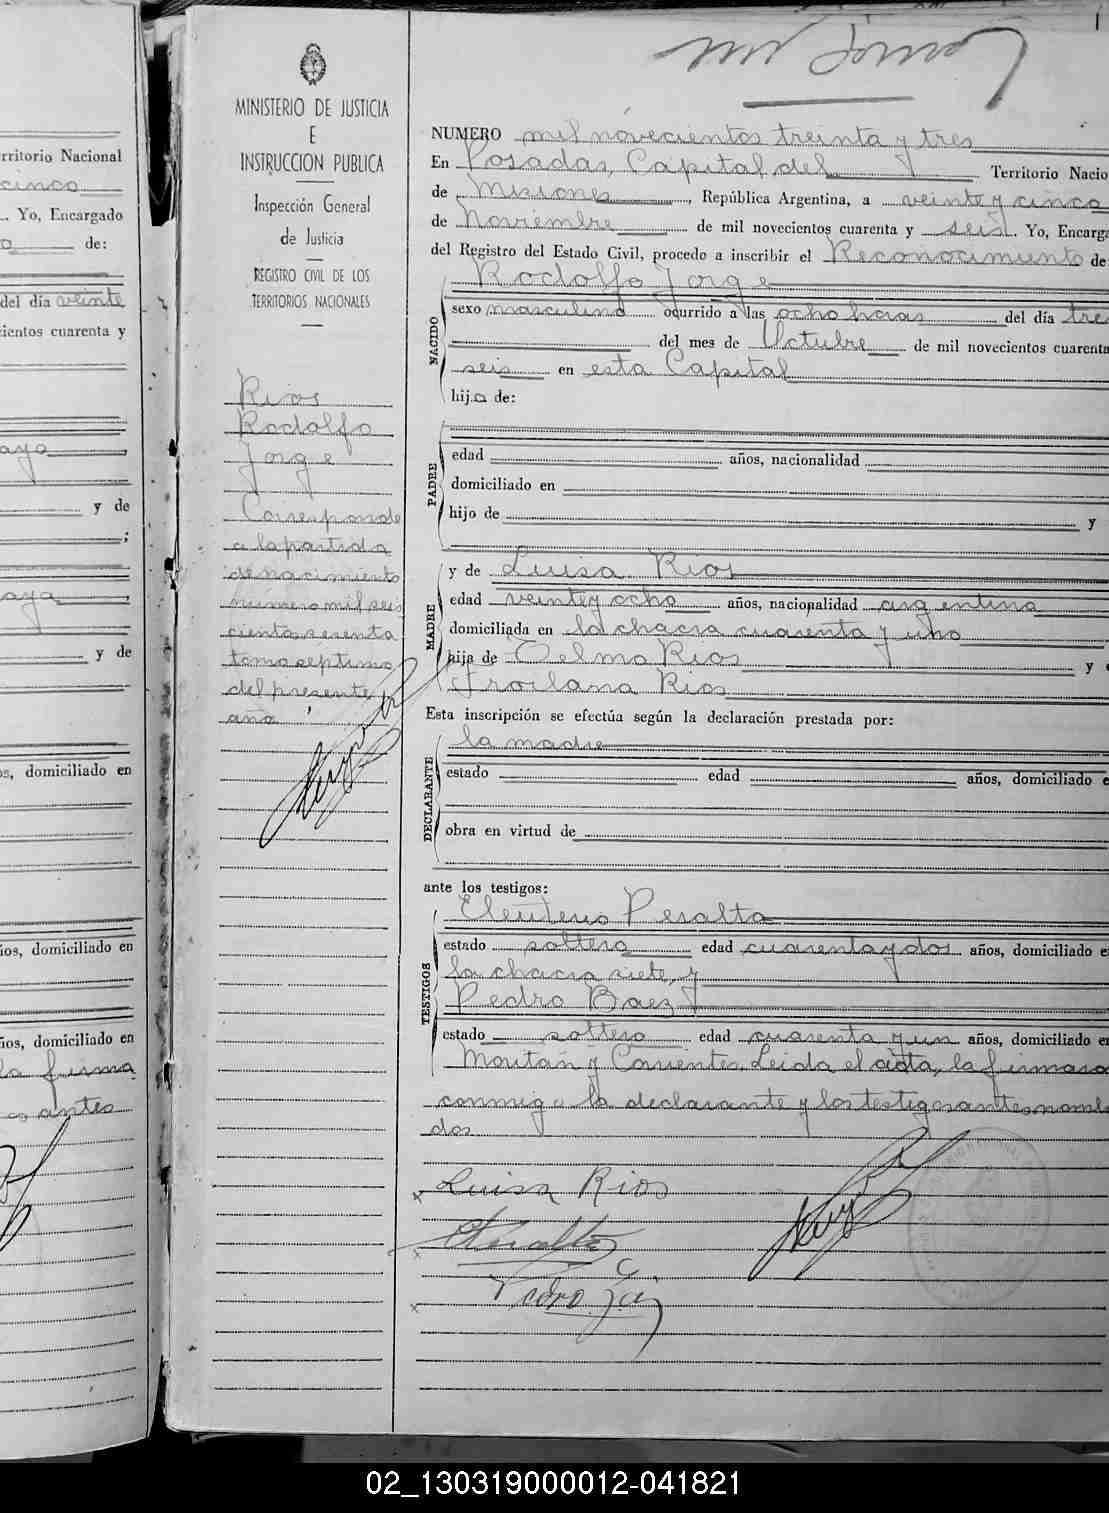 MINISTERIO DE JUSTICIA
E
INSTRUCCION PUBLICA
Inspección General
de Justicia
REGISTRO CIVIL DE LOS
TERRITORIOS NACIONALES
Rios
Rodolfo
Jorge
Corresponde
a la partida
de nacimiento
número mil seis
cientos sesenta
tomo séptimo
del presente
año
NUMERO mil novecientos treinta y tres
En Posadas, Capital del Territorio Nacio
de Misiones, República Argentina, a veinte y cinco
de Noviembre de mil novecientos cuarenta y seis. Yo, Encarga
del Registro del Estado Civil, procedo a inscribir el Reconocimiento de
NACIDO
Rodolfo Jorge
sexo masculino ocurrido a las ocho horas del día tres
del mes de Octubre de mil novecientos cuarenta
seis en esta Capital
hijo de:
PADRE
edad años, nacionalidad
domiciliado en
hijo de y
MADRE
y de Luisa Rios
edad veinte y ocho años, nacionalidad argentina
domiciliada en la chacra cuarenta y uno
hija de Telmo Rios y
Froilana Rios
Esta inscripción se efectúa según la declaración prestada por:
DECLARANTE
la madre
estado edad años, domiciliado e
obra en virtud de
ante los testigos:
TESTIGOS
Eleuterio Peralta
estado soltero edad cuarenta y dos años, domiciliado e
la chacra siete, y
Pedro Baez
estado soltero edad cuarenta y un años, domiciliado en
y Corrientes. Leida el acta, la firmaron
conmigo la declarante y los testigos antes nombra
dos
Luisa Rios
Peralta
Pedro
rritorio Nacional
cinco
. Yo, Encargado
de:
del día veinte
cientos cuarenta y
y de
;
y de
os, domiciliado en
ños, domiciliado en
ños, domiciliado en
la firma
antes
02_130319000012-041821